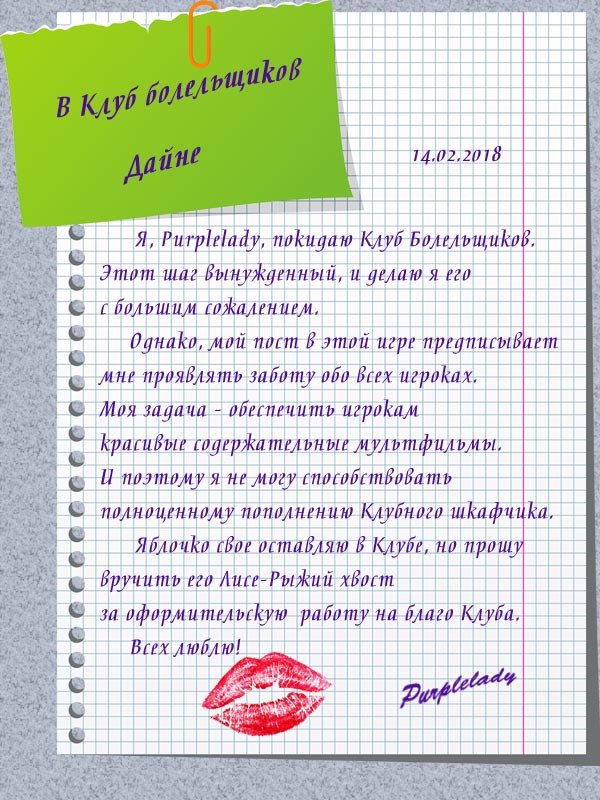 В Клуб болельщиков
Дайне
14.02.2018
Я, Purplelady, покидаю Клуб Болельщиков.
Этот шаг вынужденный, и делаю я его
с большим сожалением.
Однако, мой пост в этой игре предписывает
мне проявлять заботу обо всех игроках.
Моя задача - обеспечить игрокам
красивые содержательные мультфильмы.
И поэтому я не могу способствовать
полноценному пополнению Клубного шкафчика.
Яблочко свое оставляю в Клубе, но прошу
вручить его Лисе-Рыжий хвост
за оформительскую работу на благо Клуба.
Всех люблю!
Purplelady